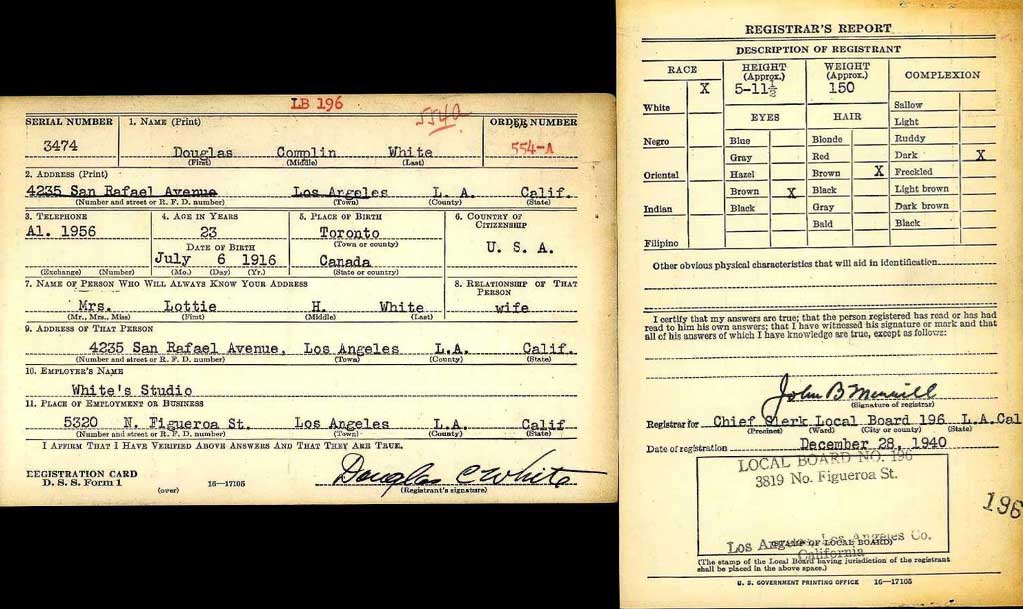 LB 196
554a
SERIAL NUMBER 1. NAME (Print) ORDER NUMBER
3474 Douglas Complin White 554-A
(First) (Middle) (Last)
2. ADDRESS (Print)
4235 San Rafael Avenue Los Angeles L. A. Calif.
(Number and street or R. F. D. number) (Town) (County) (State)
3. TELEPHONE 4. AGE IN YEARS 5. PLACE OF BIRTH 6. COUNTRY OF CITIZENSHIP
Al. 1956 23 Toronto U. S. A.
DATE OF BIRTH (Town or county)
July 6 1916 Canada
(Exchange) (Number) (Mo.) (Day) (Yr.) (State or country)
7. NAME OF PERSON WHO WILL ALWAYS KNOW YOUR ADDRESS 8. RELATIONSHIP OF THAT PERSON
Mrs. Lottie H. White wife
(Mr., Mrs., Miss) (First) (Middle) (Last)
9. ADDRESS OF THAT PERSON
4235 San Rafael Avenue, Los Angeles L.A. Calif.
(Number and street or R. F. D. number) (Town) (County) (State)
10. EMPLOYER'S NAME
White's Studio
11. PLACE OF EMPLOYMENT OR BUSINESS
5320 N. Figueroa St. Los Angeles L.A. Calif
(Number and street or R. F. D. number) (Town) (County) (State)
I AFFIRM THAT I HAVE VERIFIED ABOVE ANSWERS AND THAT THEY ARE TRUE.
REGISTRATION CARD
D. S. S. Form 1 (over) 16—17105 Douglas C White
(Registrant's signature)
REGISTRAR'S REPORT
DESCRIPTION OF REGISTRANT
RACE HEIGHT (Approx.) WEIGHT (Approx.) COMPLEXION
X 5-11½ 150
White Sallow
EYES HAIR Light
Negro Blue Blonde Ruddy
Gray Red Dark X
Oriental Hazel Brown X Freckled
Brown X Black Light brown
Indian Black Gray Dark brown
Bald Black
Filipino
Other obvious physical characteristics that will aid in identification
I certify that my answers are true; that the person registered has read or has had
read to him his own answers; that I have witnessed his signature or mark and that
all of his answers of which I have knowledge are true, except as follows:
John B Merrill
(Signature of registrar)
Registrar for Chief Clerk Local Board 196 L.A. Cal
(Precinct) (Ward) (City or county) (State)
Date of registration December 28, 1940
LOCAL BOARD NO. 196
3819 No. Figueroa St.
196
Los Angeles, Los Angeles Co.
(STAMP OF LOCAL BOARD)
California
(The stamp of the Local Board having jurisdiction of the registrant
shall be placed in the above space.)
U. S. GOVERNMENT PRINTING OFFICE 16—17105